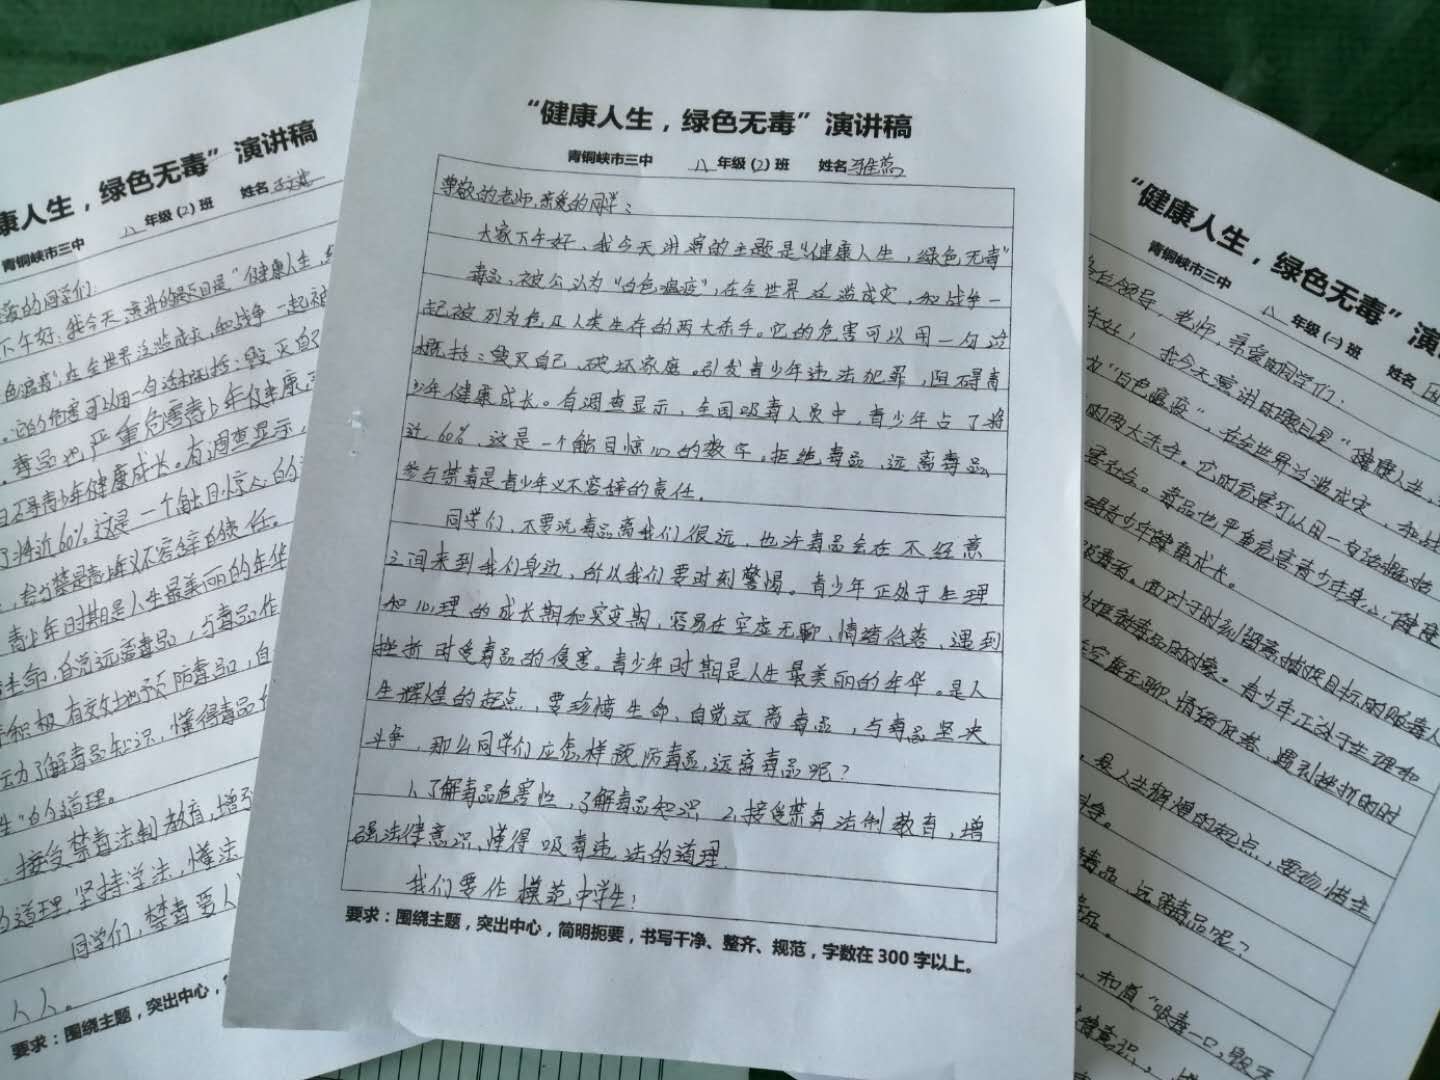 “健康人生，绿色无毒”演讲稿
青铜峡市三中 八年级(2)班 姓名
尊敬的老师，亲爱的同学：
大家下午好，我今天讲演的主题是“健康人生，绿色无毒”
毒品，被公认为“白色瘟疫”，在全世界泛滥成灾，和战争一
起被列为危及人类生存的两大杀手。它的危害可以用一句话
概括：毁灭自己，破坏家庭。引发青少年违法犯罪，阻碍青
少年健康成长。有调查显示，全国吸毒人员中，青少年占了将
近60%，这是一个触目惊心的数字。拒绝毒品，远离毒品，
参与禁毒是青少年义不容辞的责任。
同学们，不要说毒品离我们很远，也许毒品会在不经意
之间来到我们身边，所以我们要时刻警惕。青少年正处于生理
和心理的成长期和突变期，容易在空虚无聊，情绪低落，遇到
挫折时受毒品的侵害。青少年时期是人生最美丽的年华。是人
生辉煌的起点，要珍惜生命、自觉远离毒品，与毒品坚决
斗争，那么同学们应怎样预防毒品，远离毒品呢？
1、了解毒品危害性，了解毒品知识 2、接受禁毒法制教育，增
强法律意识，懂得吸毒违法的道理
我们要作模范中学生！
要求：围绕主题，突出中心，简明扼要，书写干净、整齐、规范，字数在300字以上。
康人生，绿色无毒”演讲稿
青铜峡市三中 八年级(2)班 姓名
爱的同学们：
下午好：我今天演讲的题目是“健康人生，
色瘟疫”，在全世界泛滥成灾，和战争一起被
它的危害可以用一句话概括：毁灭自己
毒品也严重危害青少年身心健康
阻碍青少年健康成长。有调查显示，
了将近60%，这是一个触目惊心的
参与禁毒是青少年义不容辞的责任。
青少年时期是人生最美丽的年华
生命，自觉远离毒品，与毒品作
积极有效地预防毒品，自
了解毒品知识，懂得毒品
的道理。
接受禁毒法制教育，增强
道理，坚持学法，懂法
同学们，禁毒要人
人人。
要求：围绕主题，突出中心，
“健康人生，绿色无毒”演
青铜峡市三中 八年级(一)班 姓名
各位领导，老师，亲爱的同学们：
好！我今天演讲的题目是“健康人生，
为“白色瘟疫”，在全世界泛滥成灾，和战
的两大杀手。它的危害可以用一句话概括
毒品也严重危害青少年身心健康
碍青少年健康成长。
青少年正处于生理和
空虚无聊、情绪低落、遇到挫折的时
是人生辉煌的起点，要珍惜生
毒品，远离毒品呢？
和道“吸毒一口，毁灭
律意识，